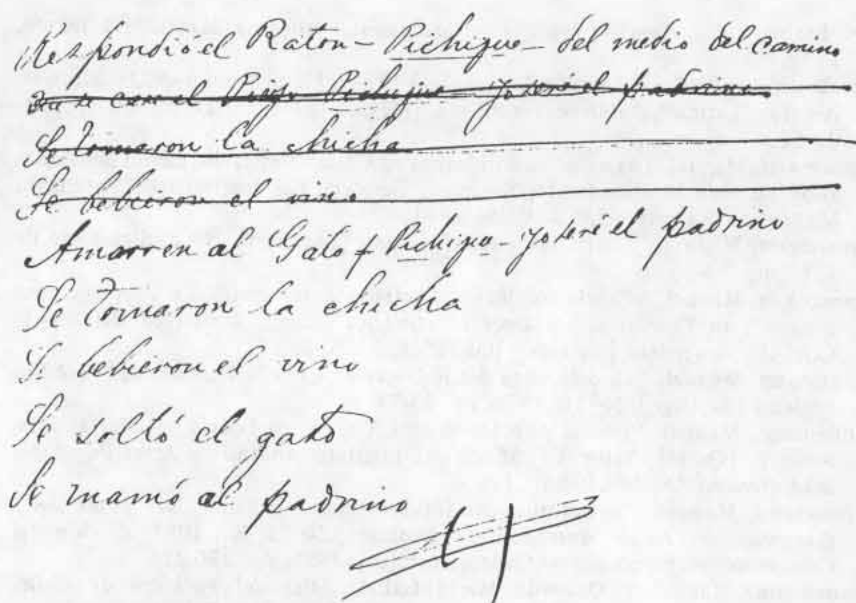 Respondió el Ratón - Pichigue - del medio del camino
el Piojo Pichigue - yo seré el padrino
Se tomaron la chicha
Se bebieron el vino
Amarren al Gato Pichigue - yo seré el padrino
Se tomaron la chicha
Se bebieron el vino
Se soltó el gato
Se mamó al padrino